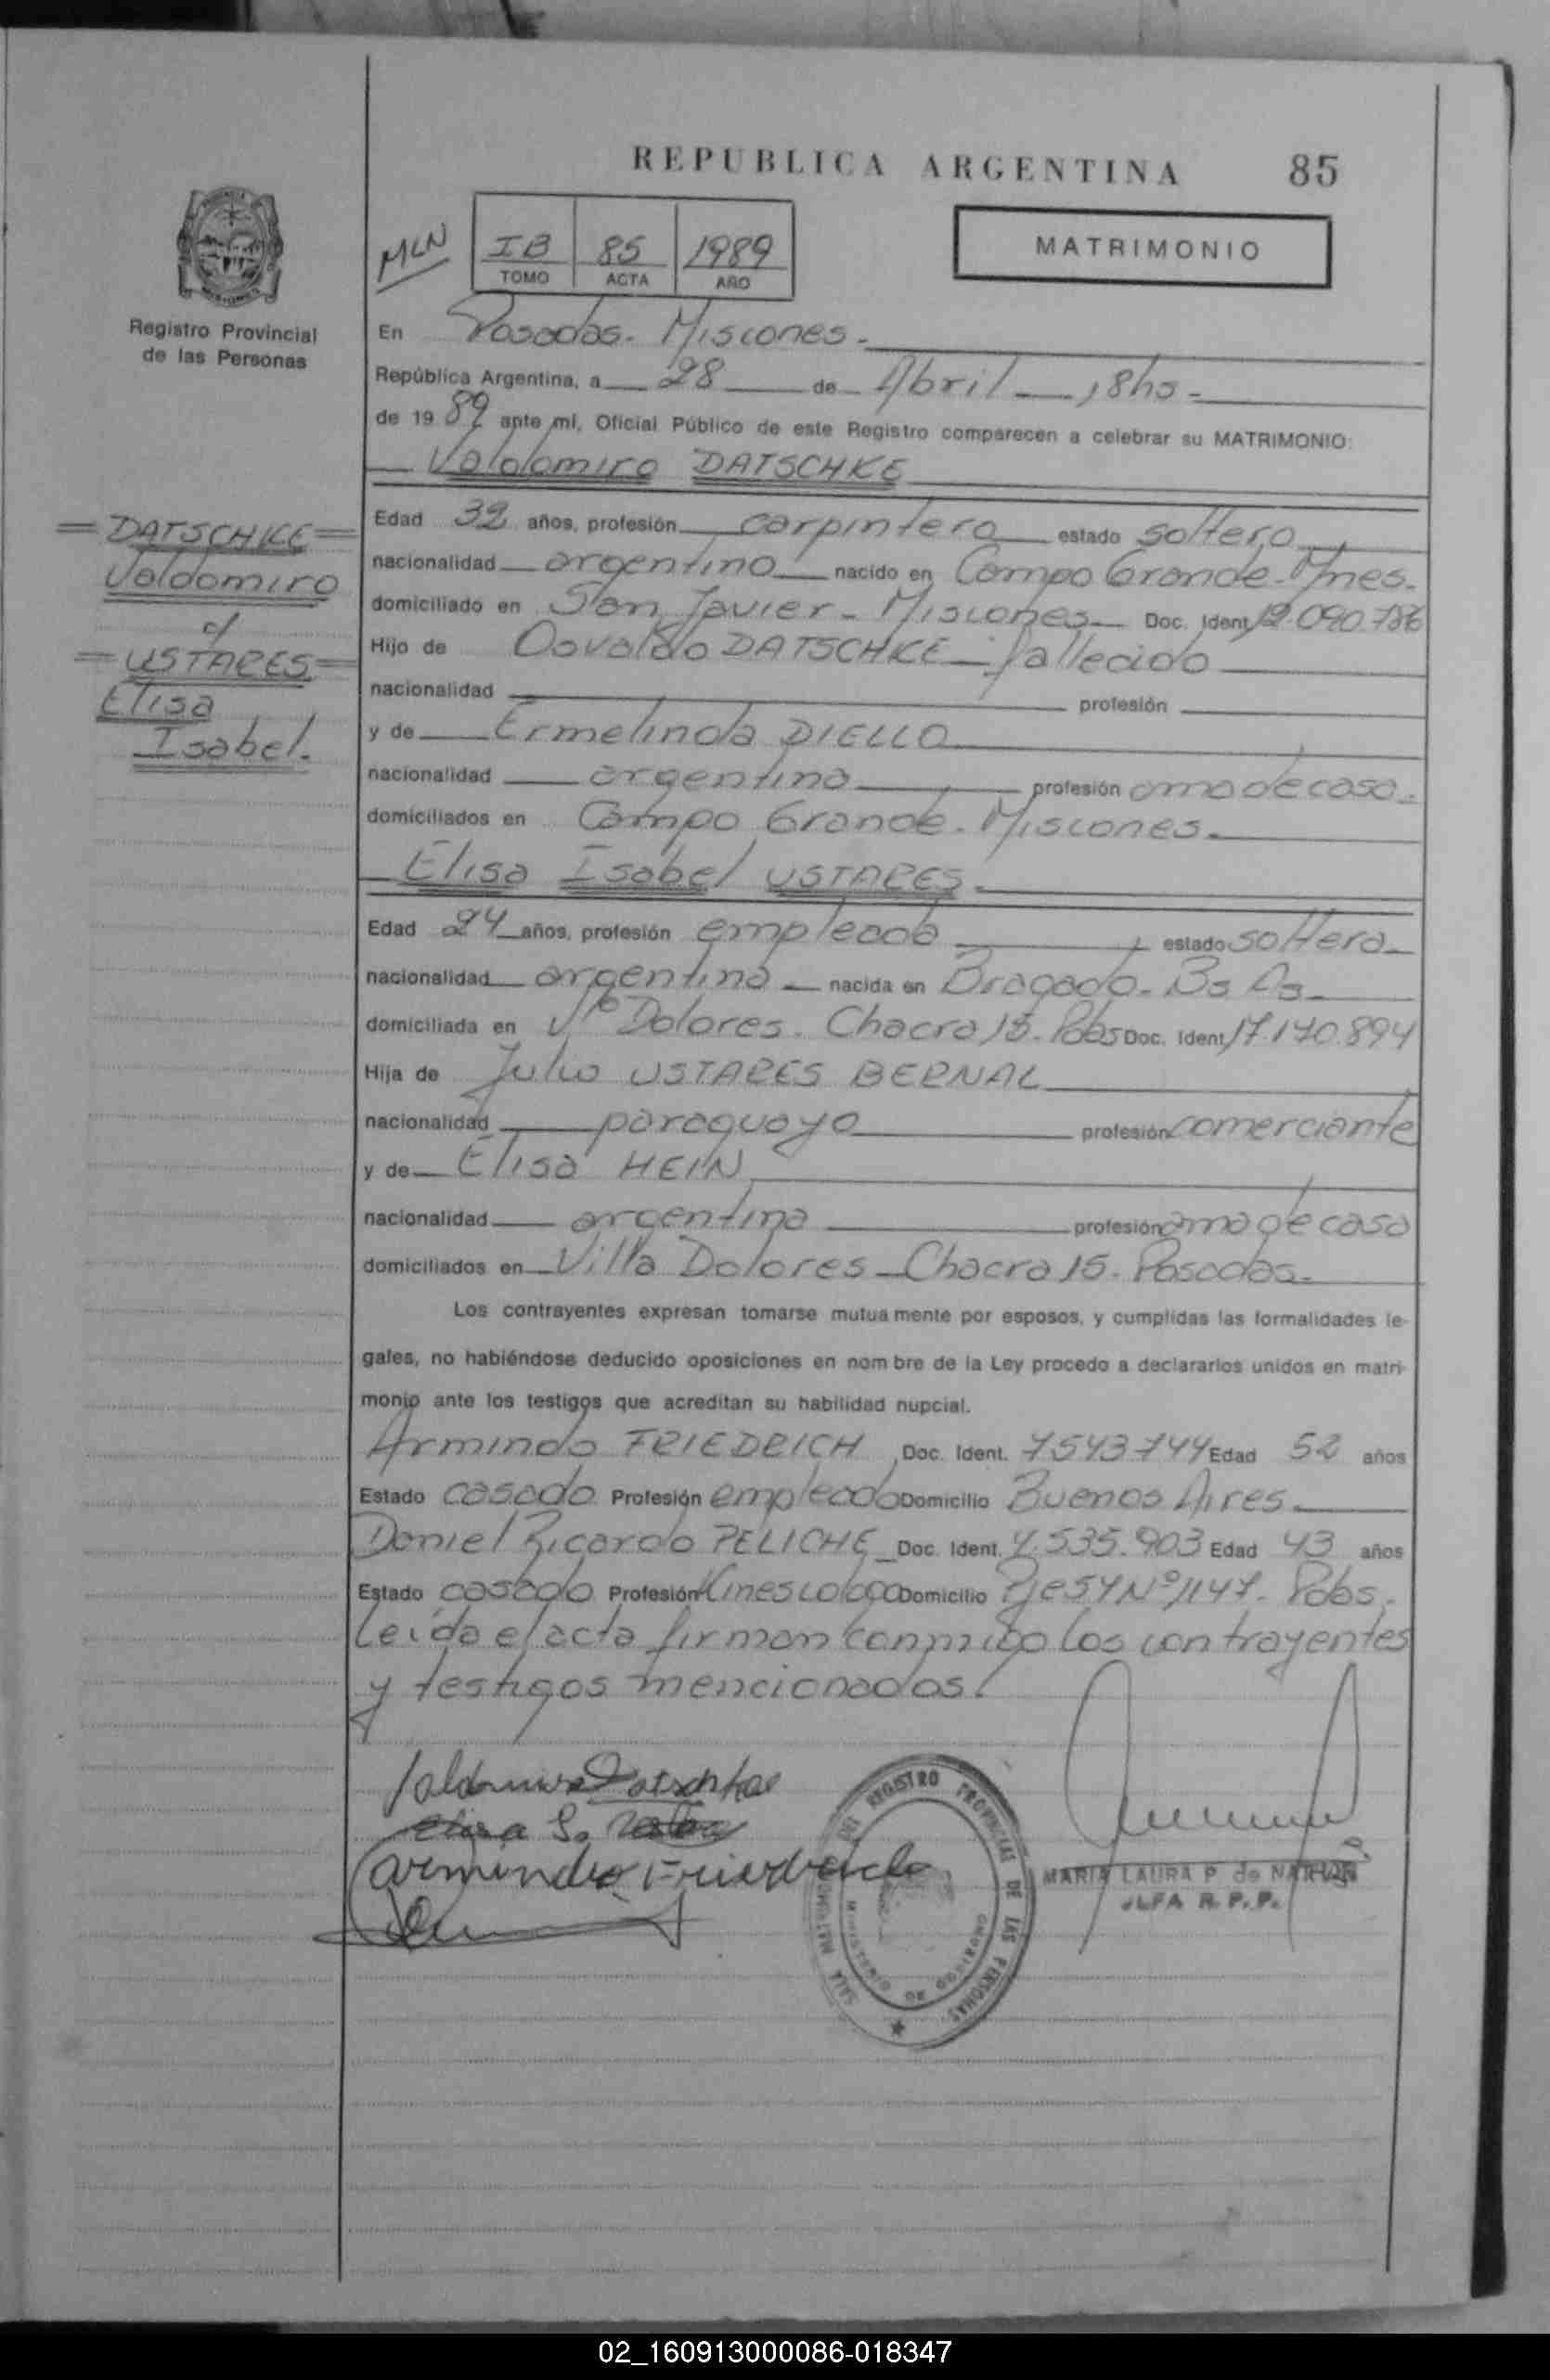 REPUBLICA ARGENTINA 85
MLN
IB 85 1989
TOMO ACTA AÑO
MATRIMONIO
Registro Provincial
de las Personas
En Posadas - Misiones -
República Argentina, a 28 de Abril - 18hs -
de 19 89 ante mí, Oficial Público de este Registro comparecen a celebrar su MATRIMONIO:
Valdomiro DATSCHKE
= DATSCHKE =
Valdomiro
c/
= USTARES =
Elisa
Isabel.
Edad 32 años, profesión carpintero estado soltero
nacionalidad argentino nacido en Campo Grande - Mnes.
domiciliado en San Javier - Misiones Doc. Ident. 12.090.786
Hijo de Osvaldo DATSCHKE - fallecido
nacionalidad profesión
y de Ermelinda DIELLO
nacionalidad argentina profesión ama de casa.
domiciliados en Campo Grande - Misiones.
Elisa Isabel USTARES
Edad 24 años, profesión empleada estado soltera
nacionalidad argentina nacida en Bragado - Bs As.
domiciliada en Vª Dolores. Chacra 15. Pdas Doc. Ident. 17.170.894
Hija de Julio USTARES BERNAL
nacionalidad paraguayo profesión comerciante
y de Elisa HEIN
nacionalidad argentina profesión ama de casa
domiciliados en Villa Dolores - Chacra 15. Posadas.
Los contrayentes expresan tomarse mutua mente por esposos, y cumplidas las formalidades le-
gales, no habiéndose deducido oposiciones en nom bre de la Ley procedo a declararlos unidos en matri-
monio ante los testigos que acreditan su habilidad nupcial.
Armindo FRIEDRICH Doc. Ident. 7543744 Edad 52 años
Estado casado Profesión empleado Domicilio Buenos Aires
Daniel Ricardo PELICHE Doc. Ident. 4.535.903 Edad 43 años
Estado casado Profesión Kinesiologo Domicilio Pje 54 Nº 1147 - Pdas.
Leida el acta firman conmigo los contrayentes
y testigos mencionados.
Valdomiro Datschke
Elisa I.
Armindo Friedrich
SALA MATRIMONIAL DEL REGISTRO PROVINCIAL DE LAS PERSONAS
MINISTERIO DE GOBIERNO
MARIA LAURA P. de
JEFA R. P. P.
02_160913000086-018347